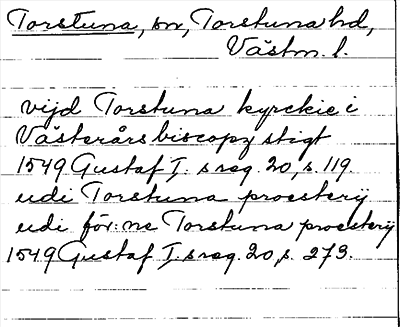 Torstuna, sn, Torstuna hd,
Västm. l.
vijd Torstuna kyrckie i
Västerårs biscopz stigt
1549 Gustaf I. s reg. 20, s. 119.
udi Torstuna proesterij
udi för:ne Torstuna proesterij
1549 Gustaf I. s reg. 20, s. 273.